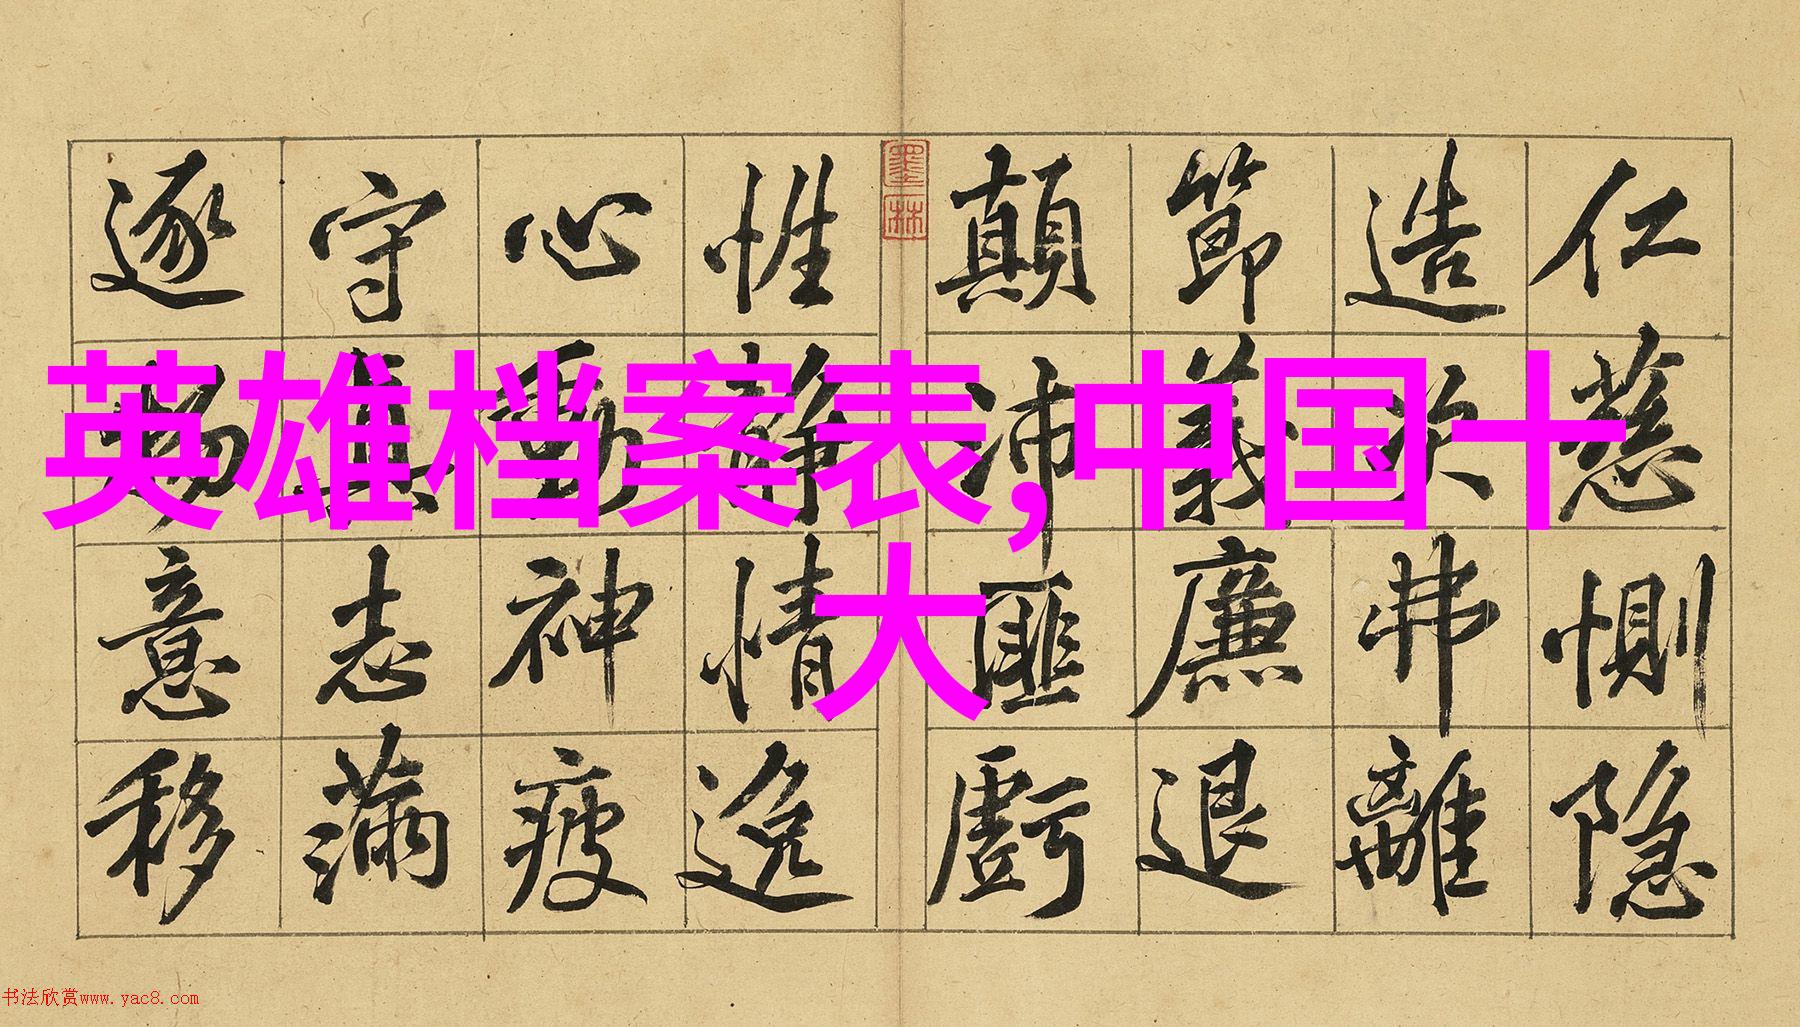 英雄档案表,中国十
大
仁慈惻隐
造次弗離
節義廉退
顛沛匪虧
性静情逸
心動神疲
守真志滿
逐物意移
墨林
书法欣赏www.yac8.com